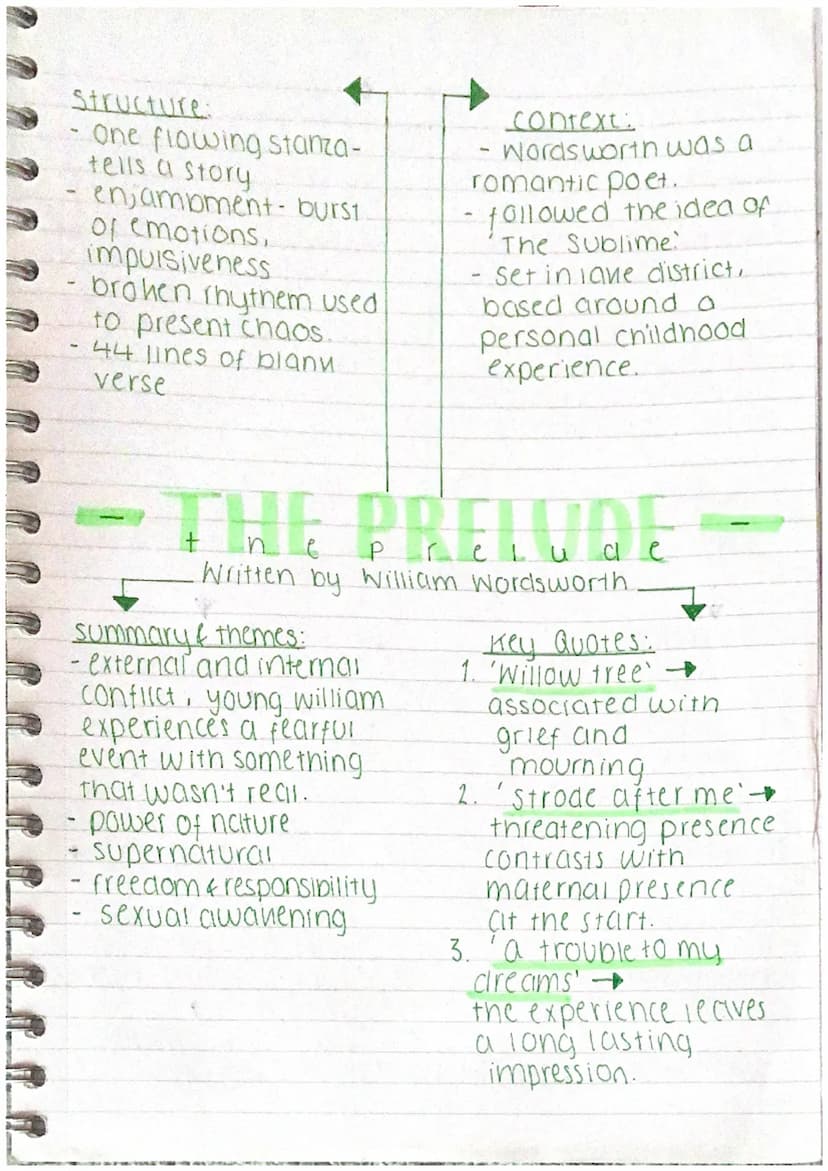 Structure:
- one flowing stanza-
tells a story
- enjambment - burst
of emotions,
impulsiveness
- broken rhythem used
to present chaos.
- 44 lines of blank
verse
context:
- Wordsworth was a
romantic poet.
- followed the idea of
'The Sublime'
- set in lake district,
based around a
personal childhood
experience.
- THE PRELUDE -
the prelude
Written by William Wordsworth
summary & themes:
- external and internal
conflict, young william
experiences a fearful
event with something
that wasn't real.
- power of nature
- supernatural
- freedom & responsibility
- sexual awakening
Key Quotes:
1. 'Willow tree' →
associated with
grief and
mourning
2. 'strode after me' →
threatening presence
contrasts with
maternal presence
at the start.
3. 'a trouble to my
dreams' →
the experience leaves
a long lasting
impression.